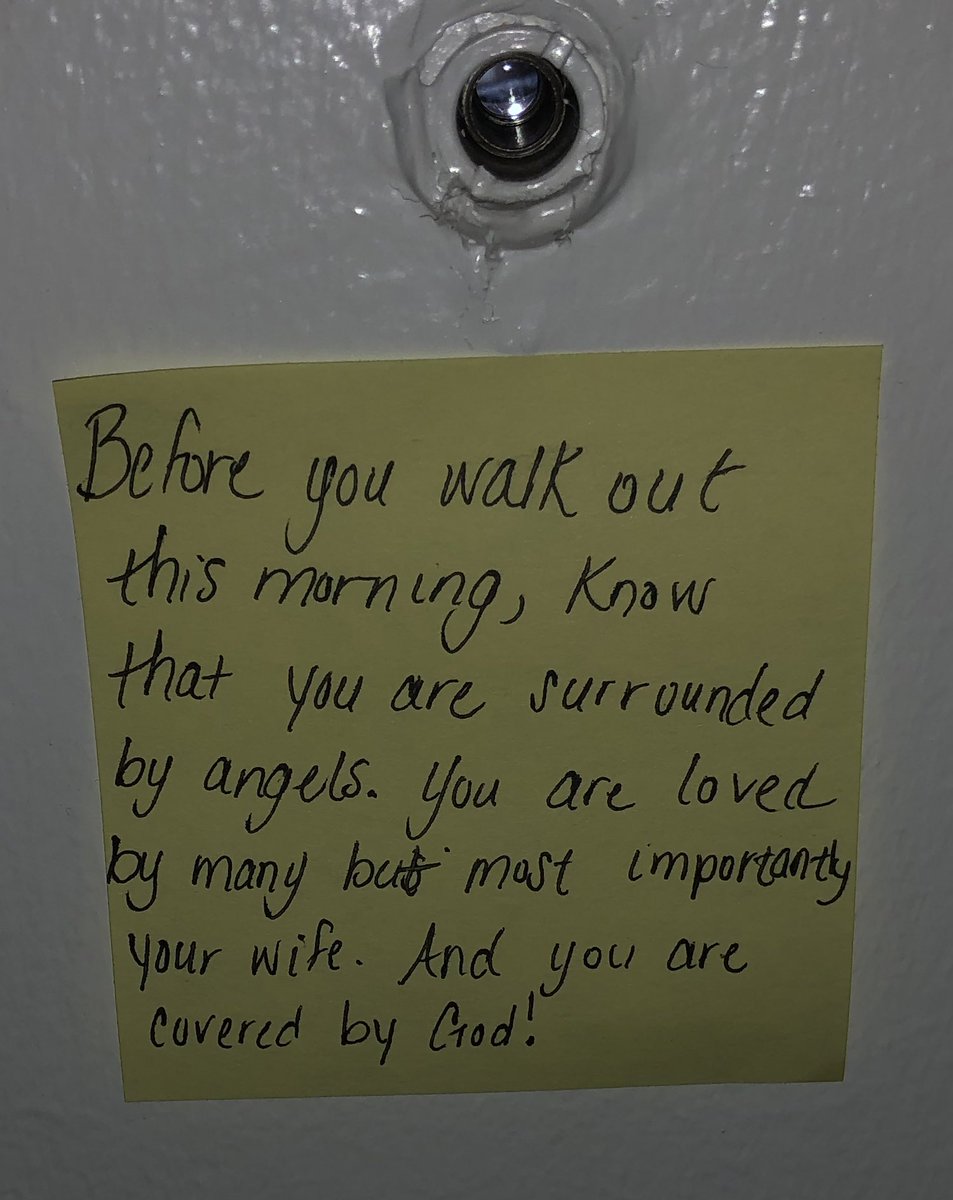 Before you walk out
this morning, Know
that you are surrounded
by angels. You are loved
by many but most importantly
your wife. And you are
covered by God!